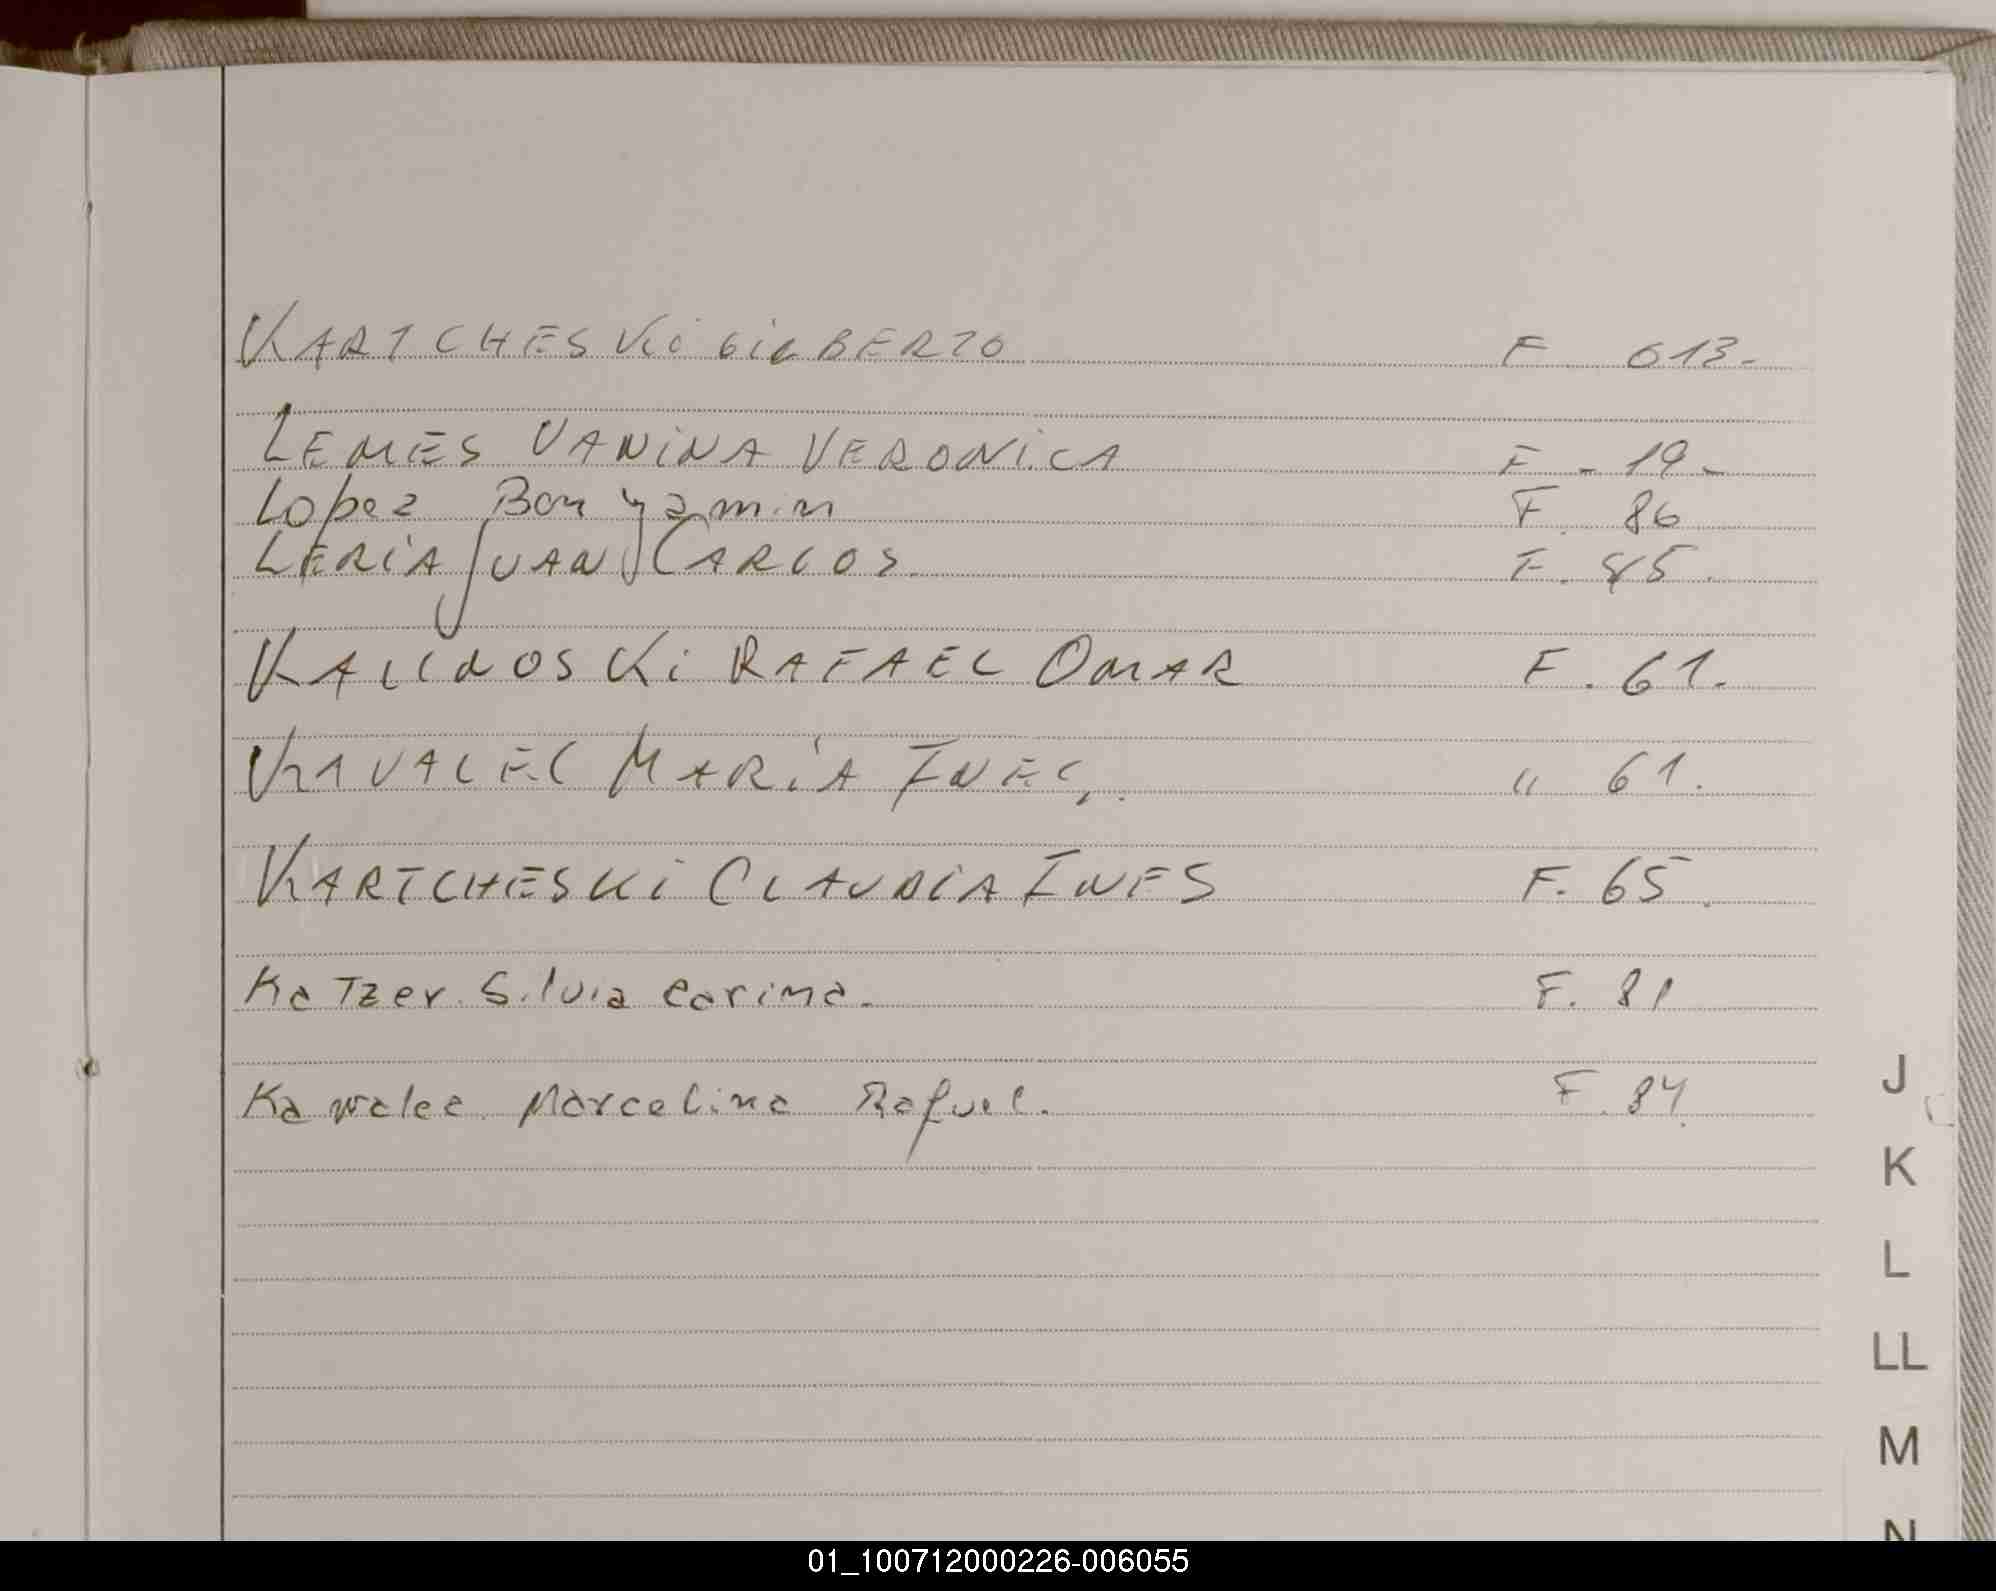 KARTCHESKi GiLBERTO F 013.-
LEMES VANiNA VERONiCA F - 19 -
Lopez Benyamin F. 86
LERiA JUAN CARLOS. F. 85.
KALiNOSKi RAFAEL OMAR F. 61.
KAVALEC MARiA INES. " 61.
KARTCHESKi CLAUDiA INES F. 65.
KaTzer Silvia Carina. F. 81
Kawalec Marcelino Rafael. F. 84.
J
K
L
LL
M
N
01_100712000226-006055